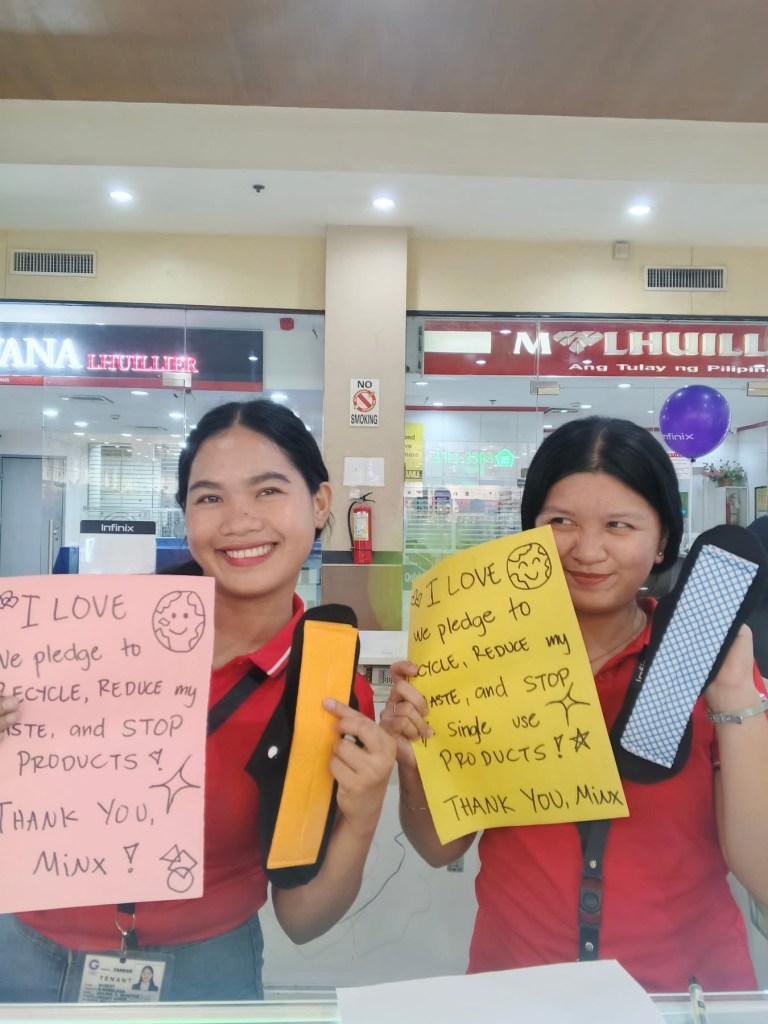 VANA LHUILLIER
M LHUILL
Ang Tulay ng Pilipin
NO
SMOKING
infinix
Infinix
I LOVE
we pledge to
RECYCLE, REDUCE my
WASTE, and STOP
PRODUCTS!
THANK YOU,
Minx!
I LOVE
we pledge to
CYCLE, REDUCE my
ASTE, and STOP
Single use
PRODUCTS!
THANK YOU, Minx
TENANT